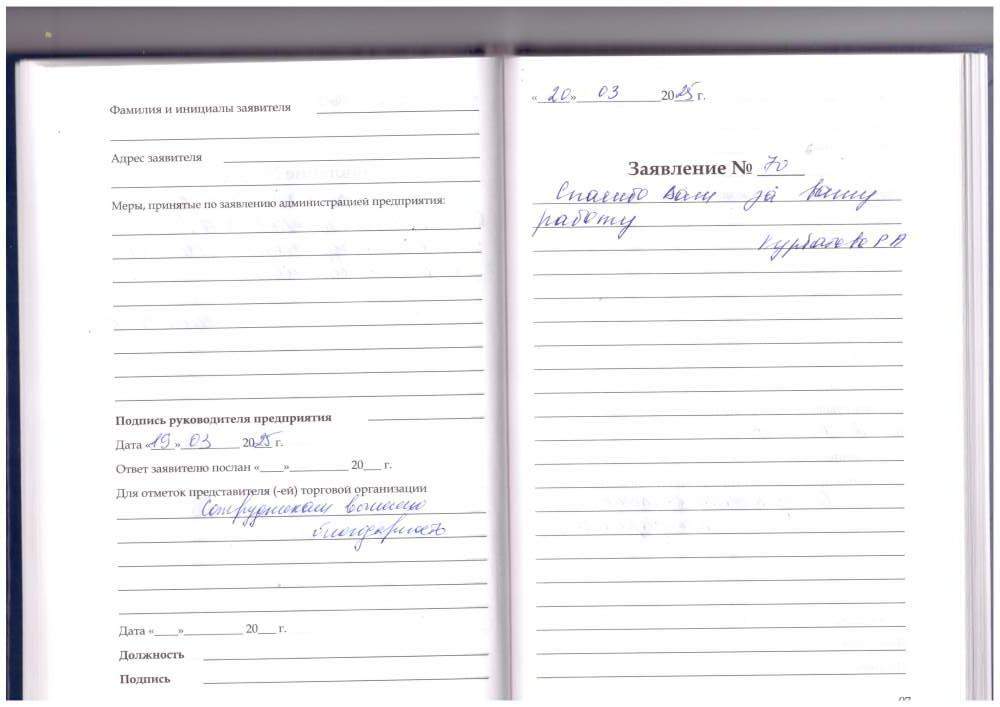 Фамилия и инициалы заявителя
Адрес заявителя
Меры, принятые по заявлению администрацией предприятия:
Подпись руководителя предприятия
Дата «19» 03 2025 г.
Ответ заявителю послан «____»__________ 20___ г.
Для отметок представителя (-ей) торговой организации
Сотрудникам вынесена
благодарность
Дата «____»__________ 20___ г.
Должность
Подпись
«20» 03 2025 г.
Заявление № 70
Спасибо Вам за вашу
работу
Курбатова Р А